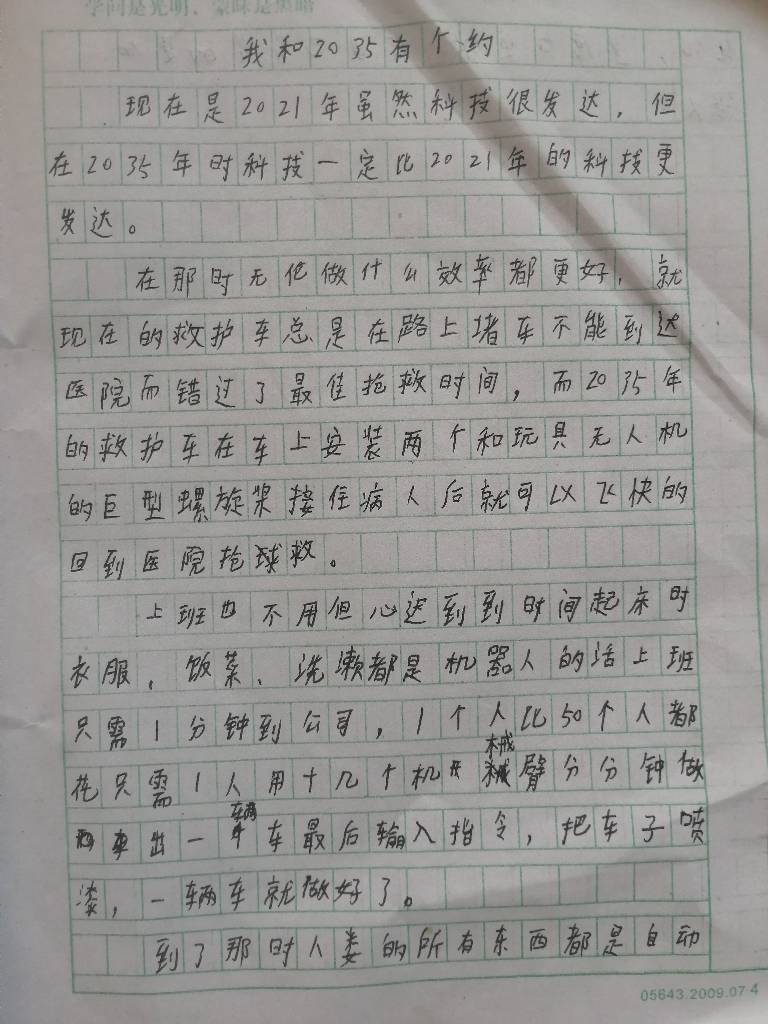 学问是光明，蒙昧是黑暗
我和2035有个约
现在是2021年虽然科技很发达，但
在2035年时科技一定比2021年的科技更
发达。
在那时无论做什么效率都更好，就
现在的救护车总是在路上堵车不能到达
医院而错过了最佳抢救时间，而2035年
的救护车在车上安装两个和玩具无人机
的巨型螺旋桨接住病人后就可以飞快的
回到医院抢球救。
上班也不用但心迟到到时间起床时
衣服、饭菜、洗漱都是机器人的话上班
只需1分钟到公司，1个人比50个人都
花只需1人用十几个机械臂分分钟做
出一辆车最后输入指令，把车子喷
漆，一辆车就做好了。
到了那时人类的所有东西都是自动
05643.2009.07 4